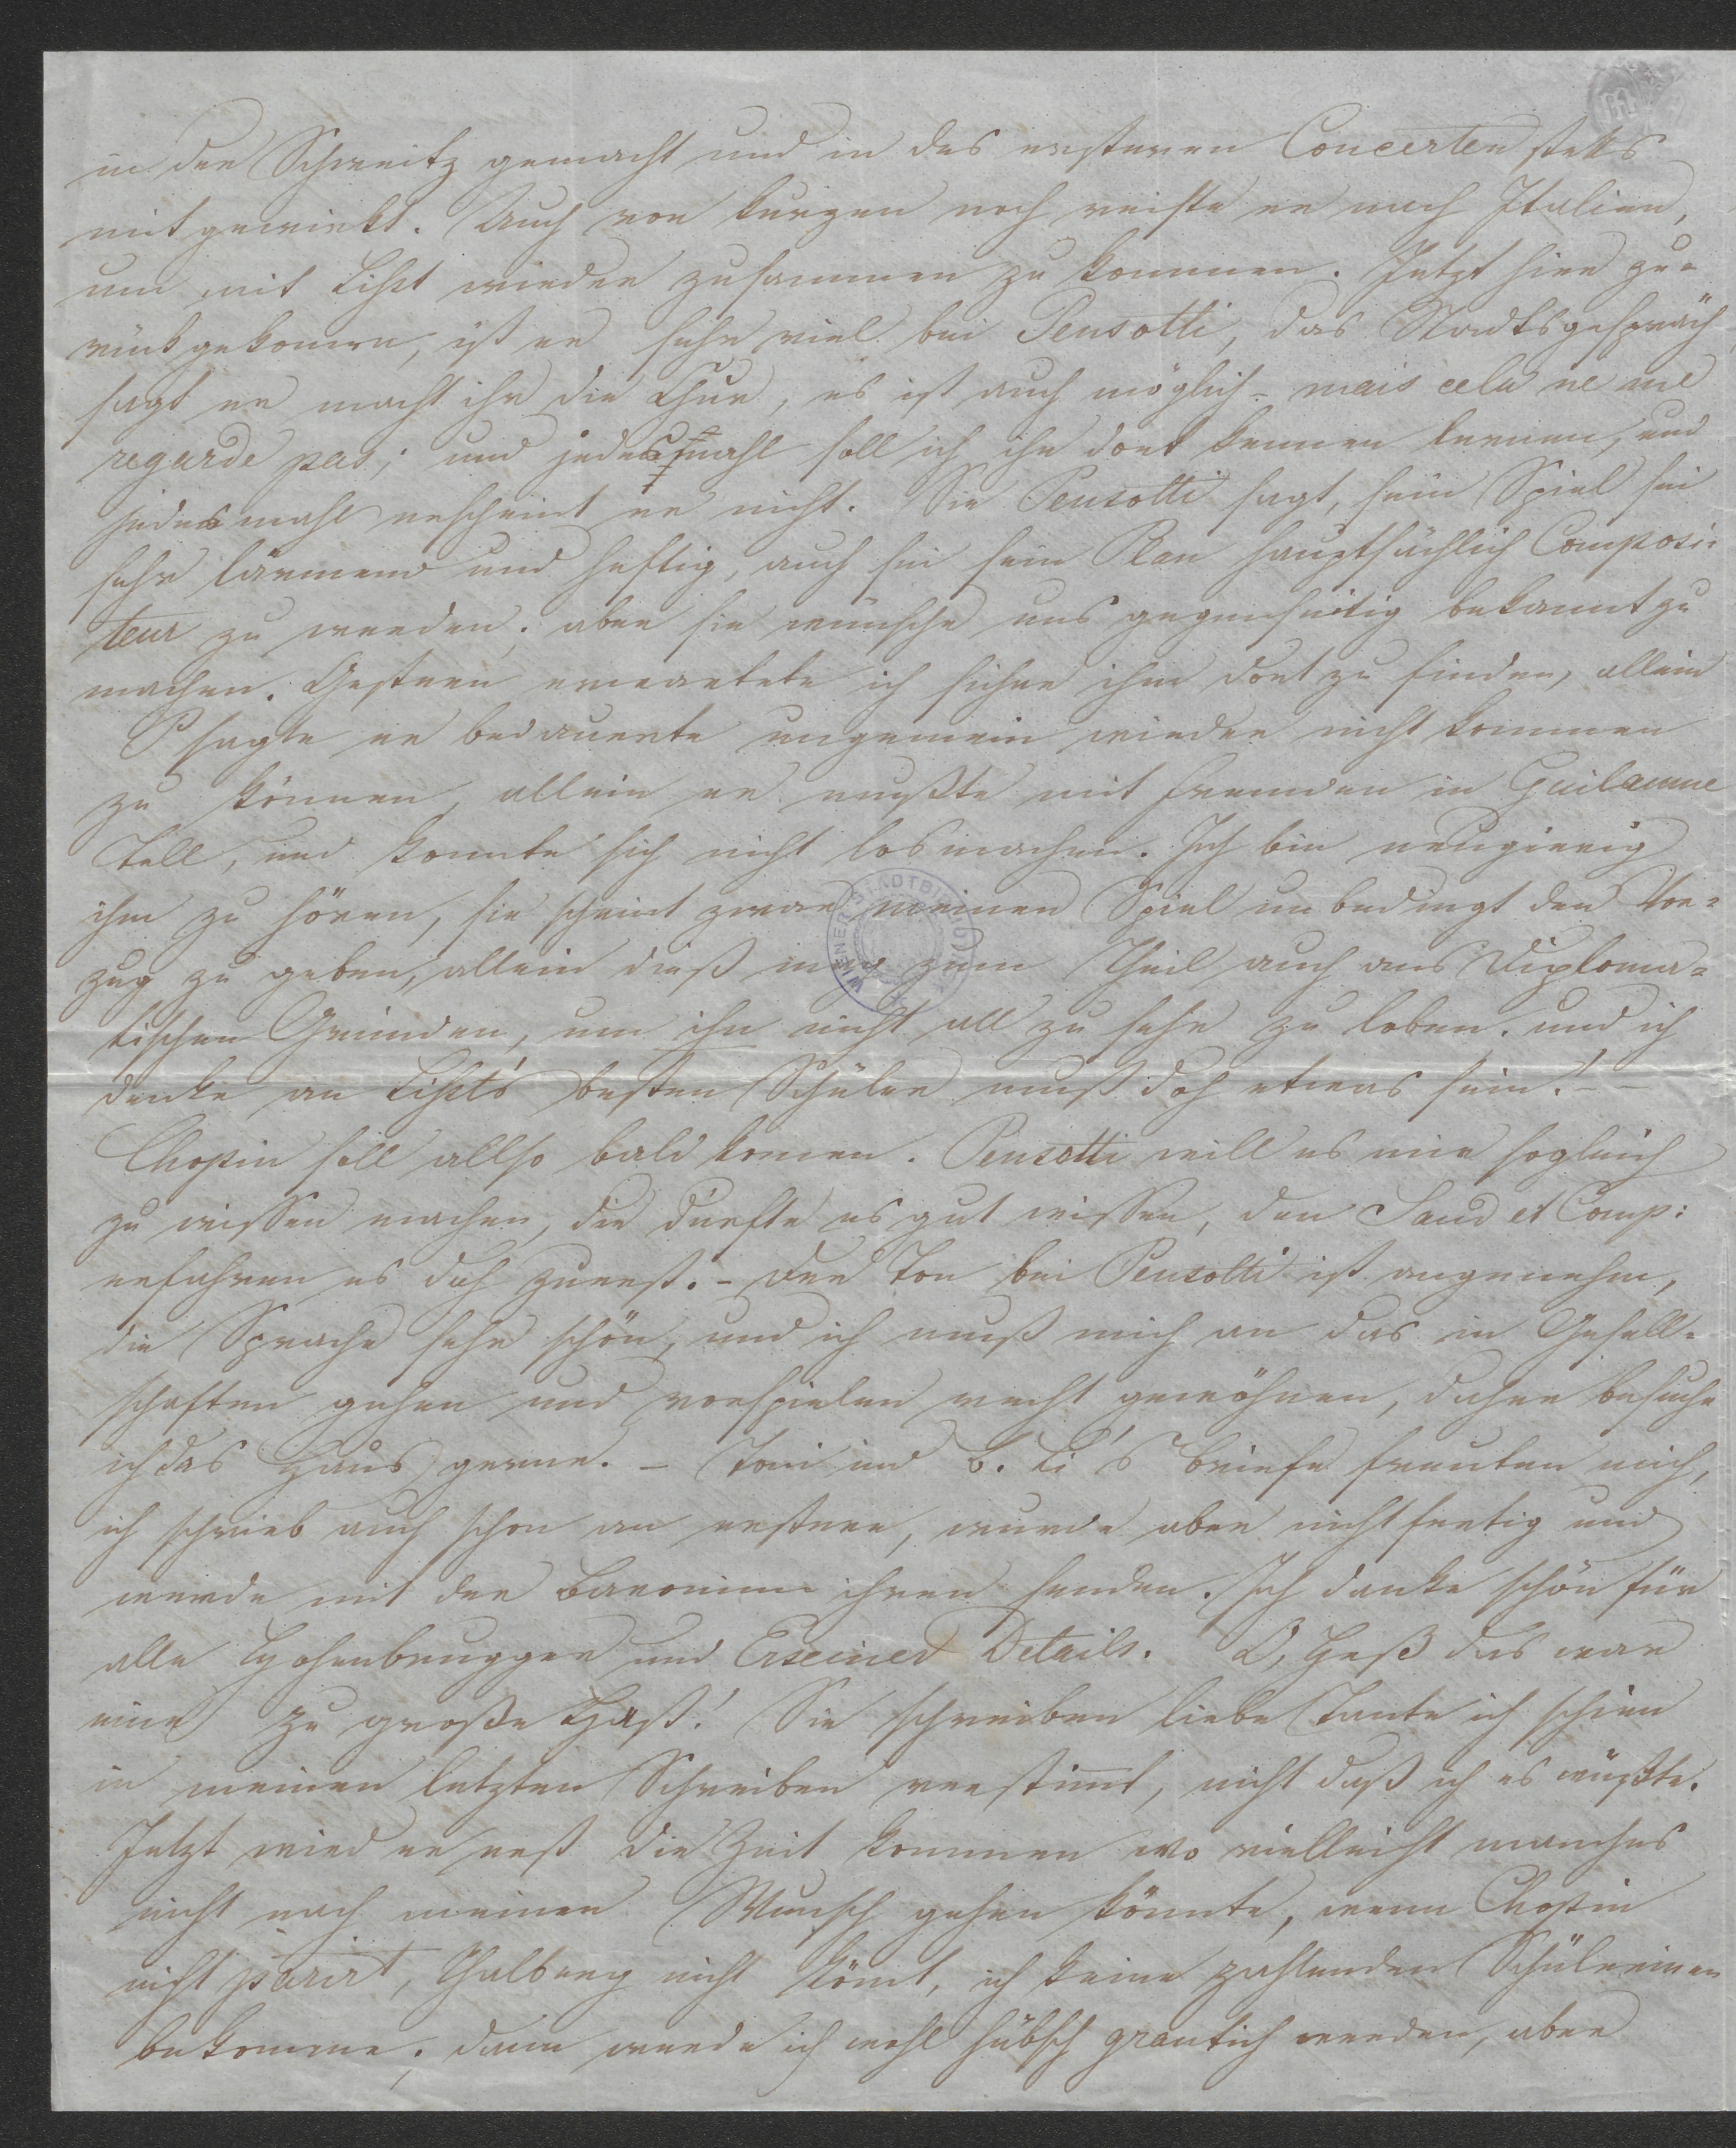 in der Schweitz gemacht und in des ersteren Concerten stetts
mitgewirkt. Auch vor kurzen noch reiste er nach Italien,
um mit Liszt wieder zusammen zu kommen. Jetzt hier zu-
rückgekomen, ist er sehr viel bei Pensotti, das Stadtsgespräch
sagt er macht ihr die Chur, es ist auch möglich – mais cela ne me
regarde pas; und jedesmahl soll ich ihn dort kennen lernen, und
jedesmahl erscheint er nicht. Die Pensotti sagt, sein Spiel sei
sehr lärmend und heftig, auch sei sein Plan hauptsächlich Composi-
teur zu werden; aber sie wünsche uns gegenseitig bekannt zu
machen. Gestern erwartete ich sicher ihn dort zu finden, allein
P sagte er bedauerte ungemein wieder nicht kommen
zu können, allein er mußte mit Fremden in Guilaume
Tell, und konnte sich nicht losmachen. Ich bin neugierig
ihn zu hören, sie scheint zwar meinen Spiel unbedingt den Vor-
zug zu geben, allein dieß mag zum Theil auch aus Diploma-
tischen Gründen, um ihn nicht all zu sehr zu loben. und ich
denke an Liszt's besten Schüler muß doch etwas sein! –
Chopin soll allso bald komen. Pensotti will es mir sogleich
zu wissen machen, die dürfte es gut wissen, den Sand et Comp:
erfahren es doch zuerst. – Der Ton bei Pensotti ist angenehm,
die Sprache sehr schön, und ich muß mich an das in Gesell-
schaften gehen und vorspielen recht gewöhnen, daher besuche
ich das Haus gerne. – Toni und B. Li's Briefe freuten mich,
ich schrieb auch schon an erstere, wurde aber nicht fertig und
werde mit der Baronin ihren senden. Ich danke schön für
alle Hohenbrugger und Details. O, Heß das war
eine zu große Hast! Sie schreiben liebe Tante ich schien
in meinen letzten Schreiben verstimt, nicht daß ich es wüßte.
Jetzt wird er erst die Zeit kommen wo vielleicht manches
nicht nach meinen Wunsch gehen könnte, wenn Chopin
nicht parirt, Thalberg nicht kömt, ich keine zahlenden Schülerinen
bekomme; dann werde ich wohl hübsch grantich werden, aber
WIENER STADTBI